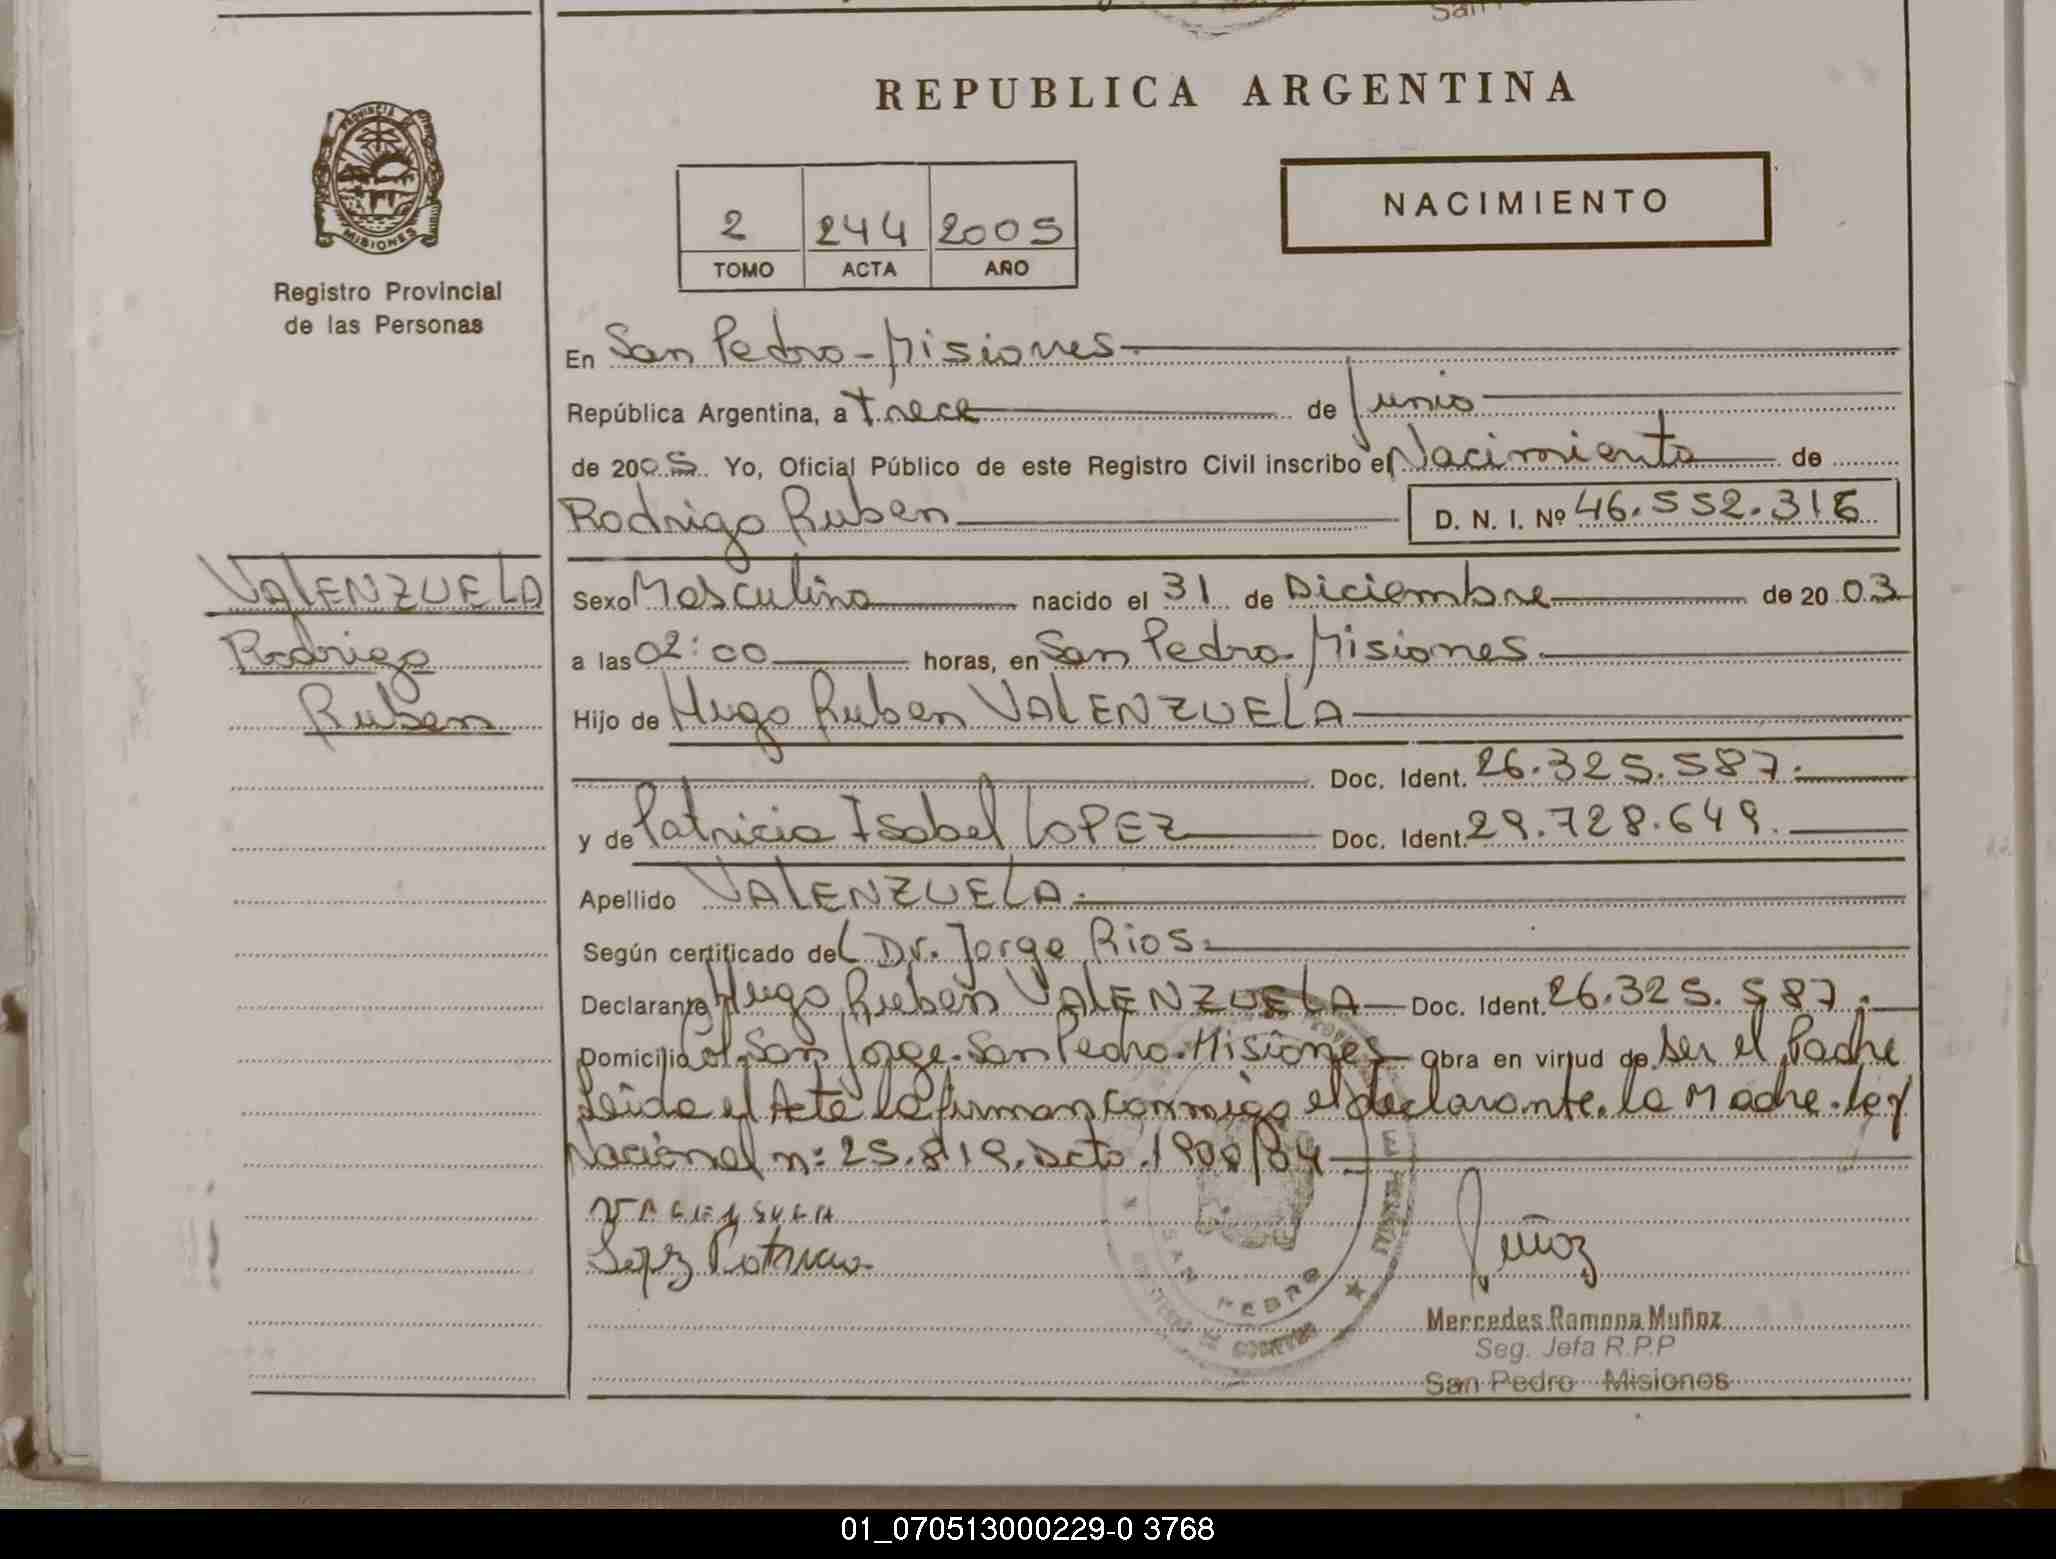 San
REPUBLICA ARGENTINA
PROVINCIA DE MISIONES
Registro Provincial
de las Personas
2 244 2005
TOMO ACTA AÑO
NACIMIENTO
En San Pedro - Misiones.
República Argentina, a trece de Junio
de 2005 Yo, Oficial Público de este Registro Civil inscribo el Nacimiento de
Rodrigo Ruben D. N. I. Nº 46.552.316
VALENZUELA
Rodrigo
Ruben
Sexo Masculino nacido el 31 de Diciembre de 20 03
a las 02:00 horas, en San Pedro. Misiones.
Hijo de Hugo Ruben VALENZUELA
Doc. Ident. 26.325.587.
y de Patricia Isabel LOPEZ Doc. Ident. 29.728.649.
Apellido VALENZUELA.
Según certificado del Dr. Jorge Rios.
Declarante Hugo Ruben VALENZUELA Doc. Ident. 26.325.587.
Domicilio Col. San Jorge. San Pedro. Misiones Obra en virtud de ser el Padre
Leida el Acta la firman conmigo el declarante. la Madre. ley
Nacional n: 25.819. Dcto. 1900/04
Lopez Patricia
Muñoz
SAN PEDRO
Mercedes Ramona Muñoz
Seg. Jefa R.P.P
San Pedro Misiones
01_070513000229-0 3768